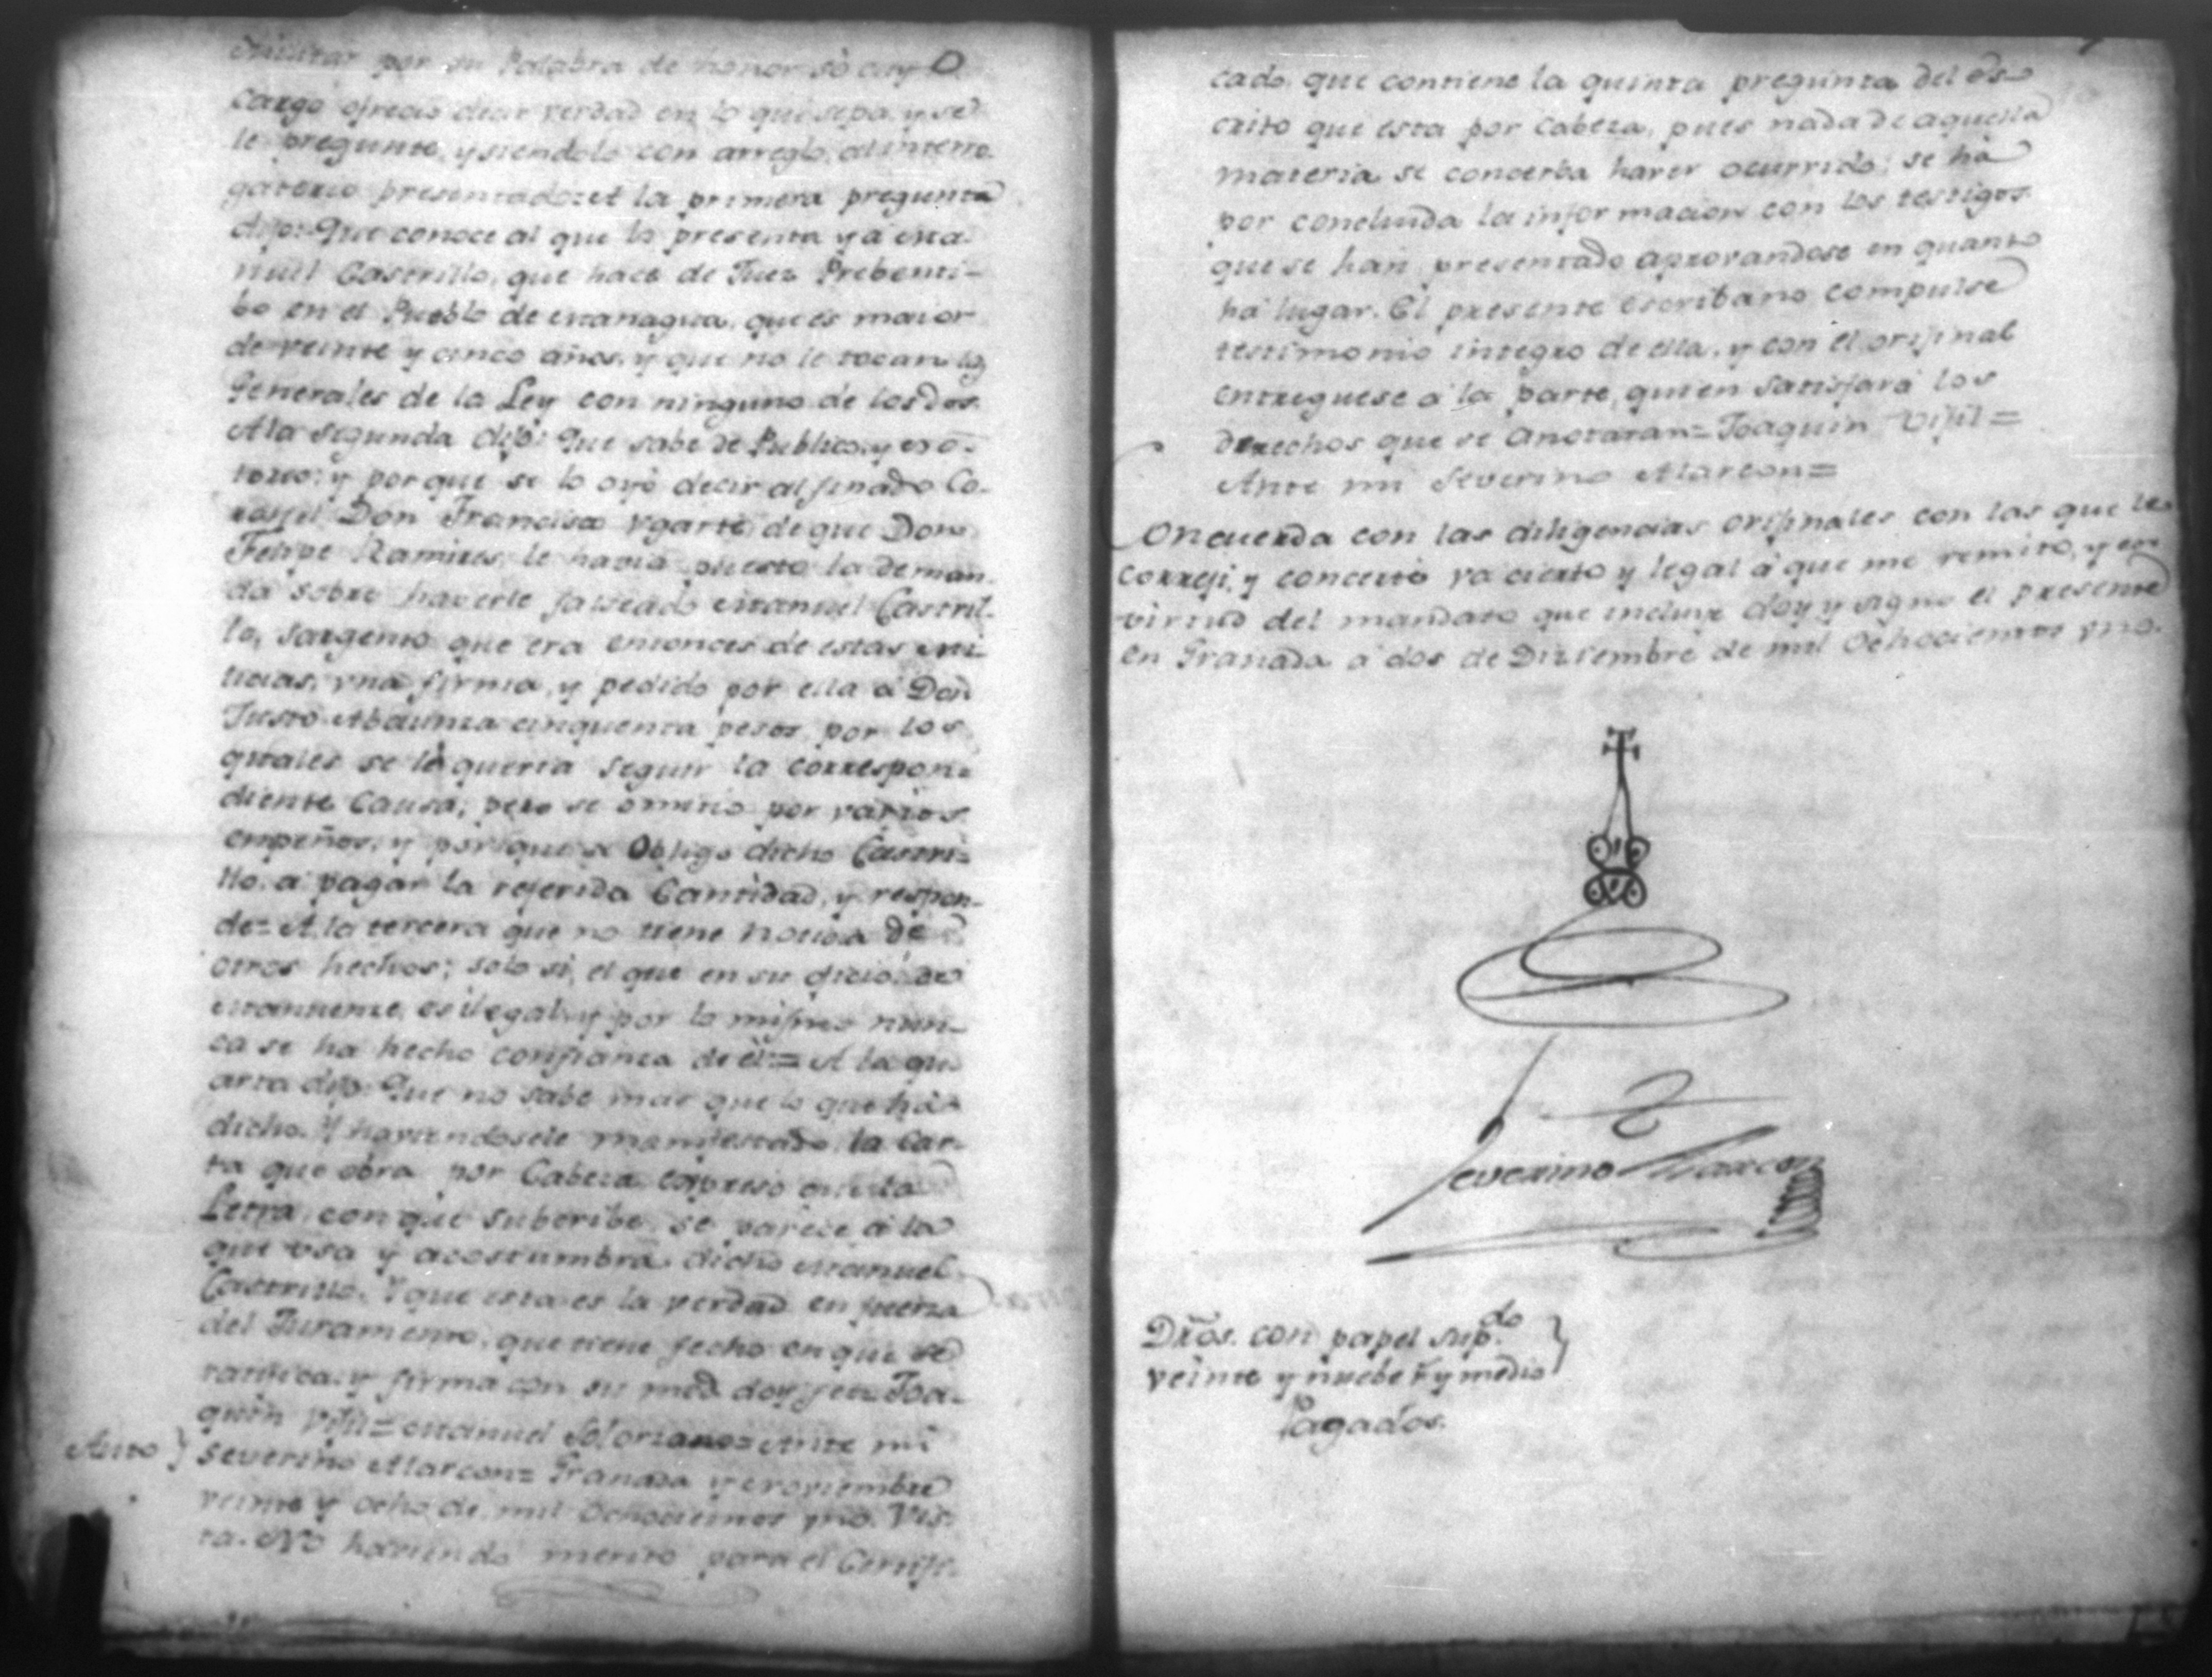 Militar por su Palabra de honor só cuyo
cargo ofrecio decir verdad en lo que sepa, y se
le pregunte, y siendolo con arreglo, al interro-
gatorio presentado: A la primera pregunta
dijo: Que conoce al que lo presenta y a Ma-
nuel Castrillo, que hace de Juez Prebenti-
bo en el Pueblo de Managua, que es maior
de veinte y cinco años, y que no le tocan las
Generales de la Ley con ninguno de los dos.
A la segunda dijo: Que sabe de Publico, y no-
torio; y porque se lo oyó decir al finado Co-
ronel Don Francisco Ugarte, de que Don
Felipe Ramires le havia puesto la deman-
da sobre haverle falseado Manuel Castril-
lo, sargento que era entonces de estas Mi-
licias, una firma, y pedido por ella á Don
Justo Abaunza cinquenta pesos, por los
quales se le queria seguir la correspon-
diente Causa; pero se omitio por varios
empeños, y porque se Obligo dicho Castri-
llo, a pagar la referida Cantidad, y respon-
de= A la tercera que no tiene noticia de
otros hechos; solo si, el que en su oficio de
es ilegal, y por lo mismo nun-
ca se ha hecho confianza de él= A la qu-
arta dijo: Que no sabe mas que lo que há
dicho. Y haviendosele manifestado la Car-
ta que obra por Cabeza expreso que la
Letra, con que subcribe, se parece á la
que usa y acostumbra dicho Manuel
Castrillo. Y que esta es la verdad en fuerza
del Juramento, que tiene fecho en que se
ratifica, y firma con su md. doy fee= Joa-
quin Vijil= Manuel Solorzano= Ante mi
Auto } Severino Alarcon= Granada y Noviembre
veinte y ocho de mil Ochocientos uno. Vis-
ta. No haviendo merito para el Certifi-
cado que contiene la quinta pregunta del es-
crito que esta por Cabeza, pues nada de aquella
materia se concerba haver ocurrido; se há
por concluida la informacion con los testigos
que se han presentado aprovandose en quanto
há lugar. El presente Escribano compulse
testimonio integro de ella, y con el orijinal
entreguese á la parte, quien satisfará los
derechos que se anotaran= Joaquin Vijil=
Ante mi Severino Alarcon=
Concuerda con las diligencias orijinales con las que le
correji, y concerto va cierto y legal á que me remito, y en
virtud del mandato que incluye doy y signo el presente
en Granada á dos de Diziembre de mil Ochocientos uno.
Severino Alarcon
Dros. con papel sup.do
veinte y nuebe r. y medio }
Pagados.